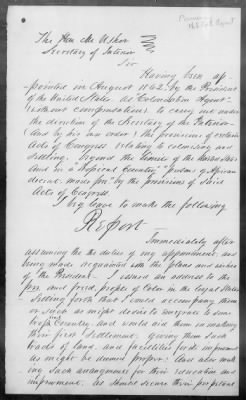 The Hon. Mr Usher
Secretary of Interior
Sir
Having been ap-
-pointed in August 1862, by the President
of the United States as Colonization Agent
(without compensation) to carry out under
the direction of the Secretary of the Interior
(and by his own order) the provisions of certain
Acts of Congress relating to colonizing and
settling, beyond the limits of the United States
and in a "tropical Country" persons of African
decent made free by the provisions of said
Acts of Congress
I beg leave to make the following
Report
Immediately after
assuming the duties of my appointment, and
being made acquainted with the plans and wishes
of the President. I issued an address to the
free and freed people of Color in the Loyal States
Setting forth that I would accompany them
or such as might desire to emigrate to some
Country, and would aid them in making
their first Settlement, giving them such
tracts of land, and facilities for improvement
as might be deemed proper. And also make
any such arrangements for their education and
improvement, as should secure their perpetual